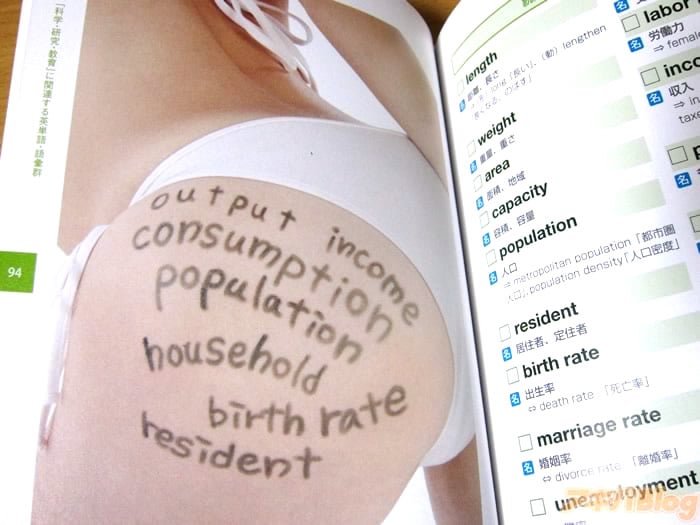 「科学・研究・教育」に関連する英単語・語彙群
94
output income
consumption
population
household
birth rate
resident
length
名 距離、長さ
long「長い」、(動) lengthen
「長くなる、のばす」
weight
名 重量、重さ
area
名 面積、地域
capacity
名 容積、容量
population
名 人口
⇒ metropolitan population「都市圏
人口」, population density「人口密度」
resident
名 居住者、定住者
birth rate
名 出生率
⇔ death rate 「死亡率」
marriage rate
名 婚姻率
⇔ divorce rate 「離婚率」
unemployment
labor
名 労働力
⇒ female
inco
名 収入
⇒ in
taxe
p
名
Blog